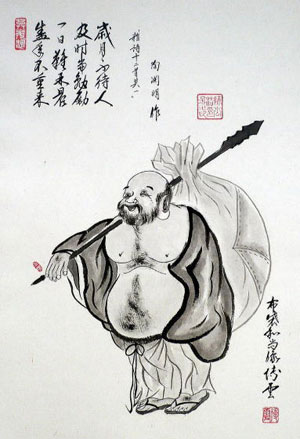 盛年不重来
一日難再晨
及时当勉励
歲月不待人
雜詩十二首其一
陶渊明 作
布袋和尚